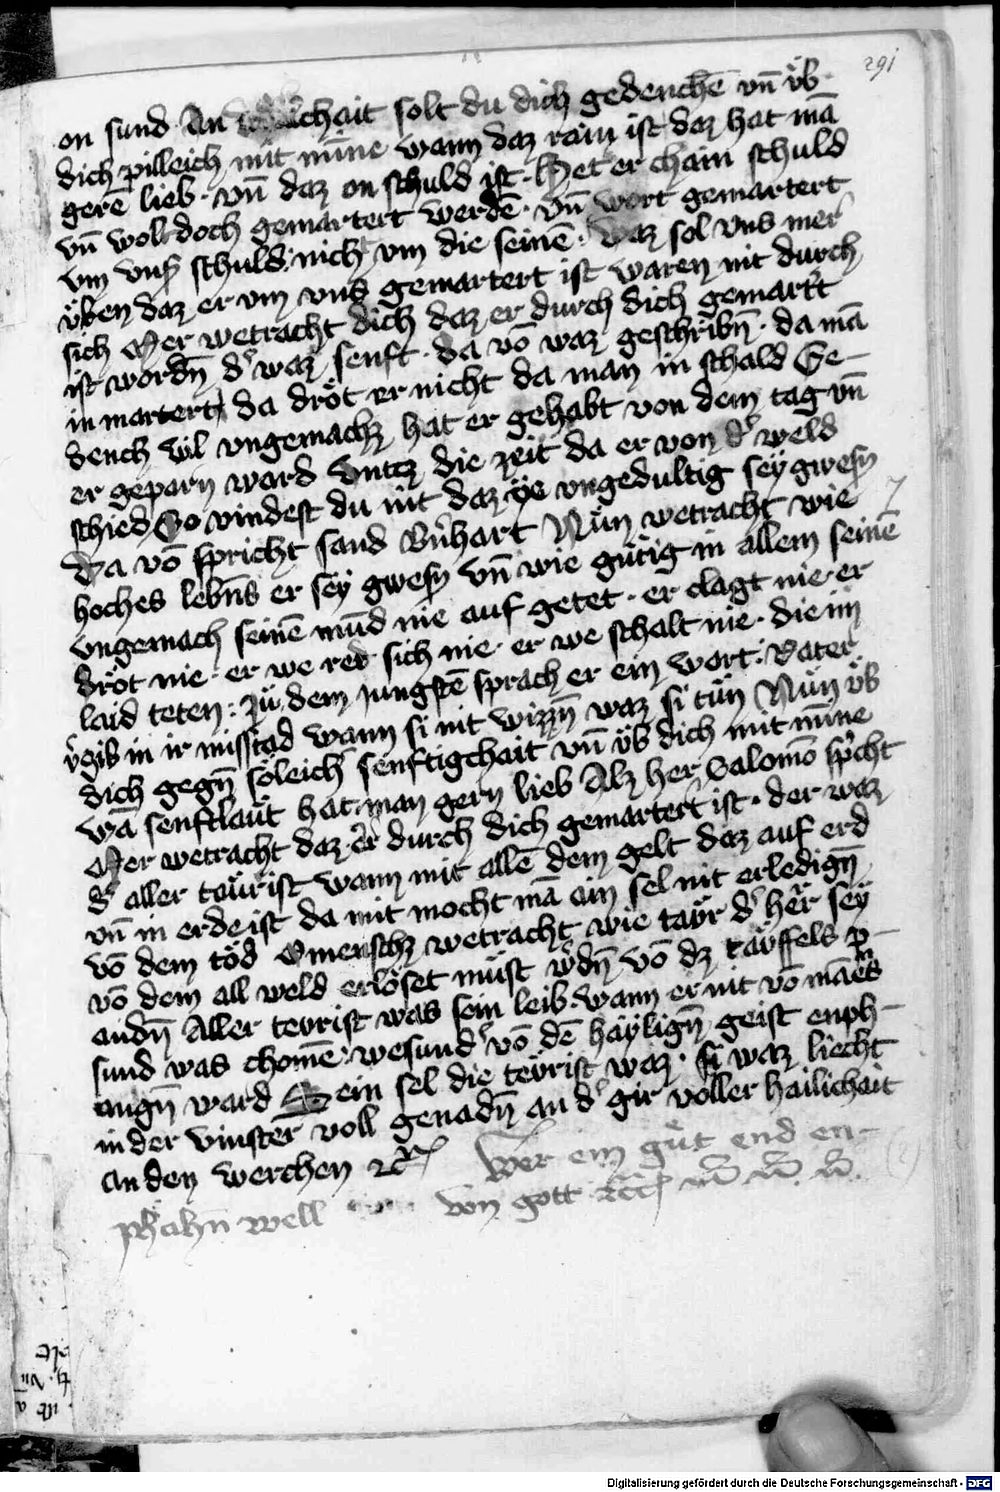 291
on sund An chait solt du dich gedenchē vn̄ v̈b
dich pilleich mit mīne wann daz rain ist daz hat mā
gerē lieb · vn̄ daz on schuld ist · Het er chain schuld
vn̄ wolt doch gemartert werdē · vn̄ wort gemartert
vm vnß schuld · nicht vm die seinē · waz sol vns mer
v̈ben daz er vm vns gemartert ist waren nit durch
sich Mer wetracht dich daz er durch dich gemartert
ist wordn̄ d' waz senft · da vō waz geschribn̄ · da mā
in martert da dröt er nicht da man in schald Ge-
dench wil vngemachz hat er gehabt von dem tag vn̄
er geparn ward vntz die zeit da er von d' weld
schied So vindest du nit daz ÿe vngedultig sey gwesn
Da vō spricht sand Bn̄hart Nün wetracht wie
hoches lebn̄s er sey gwesn vn̄ wie gütig in allem seinē
vngemach seinē mūd nie auf getet · er clagt nie · er
dröt nie · er we red sich nie · er we schalt nie · die im
laid teten : Zü dem Jungstē sprach er ein wort : Vater
v'gib in ir misstad wann si nit wizzn̄ waz si tün Nün v̈b
dich gegn̄ söleich senftigchait vn̄ v̈b dich mit mīne
wā senftlaüt hat man gern lieb Alz her Salomō sp'cht
Mer wetracht daz er durch dich gemartert ist · der waz
d' aller teürist wann mit allē dem gelt daz auf erd
vn̄ in erde ist da mit mocht mā ain sel nit erledign̄
vō dem töd O mensch wetracht wie taür d' her sey
vō dem all weld erlöset müst w'dn̄ vō dz taüffels p-
andn̄ Aller tevrist was sein leib wann er nit vō mānes
sund was chomē : wesund' vō dē häylign̄ geist enph-
angn̄ ward Sein sel die teürist waz · si waz liecht
in der vinster voll genadn̄ an d' gir voller hailichait
an den werchen
Wer ein güt end en-
phahn̄ well von gott